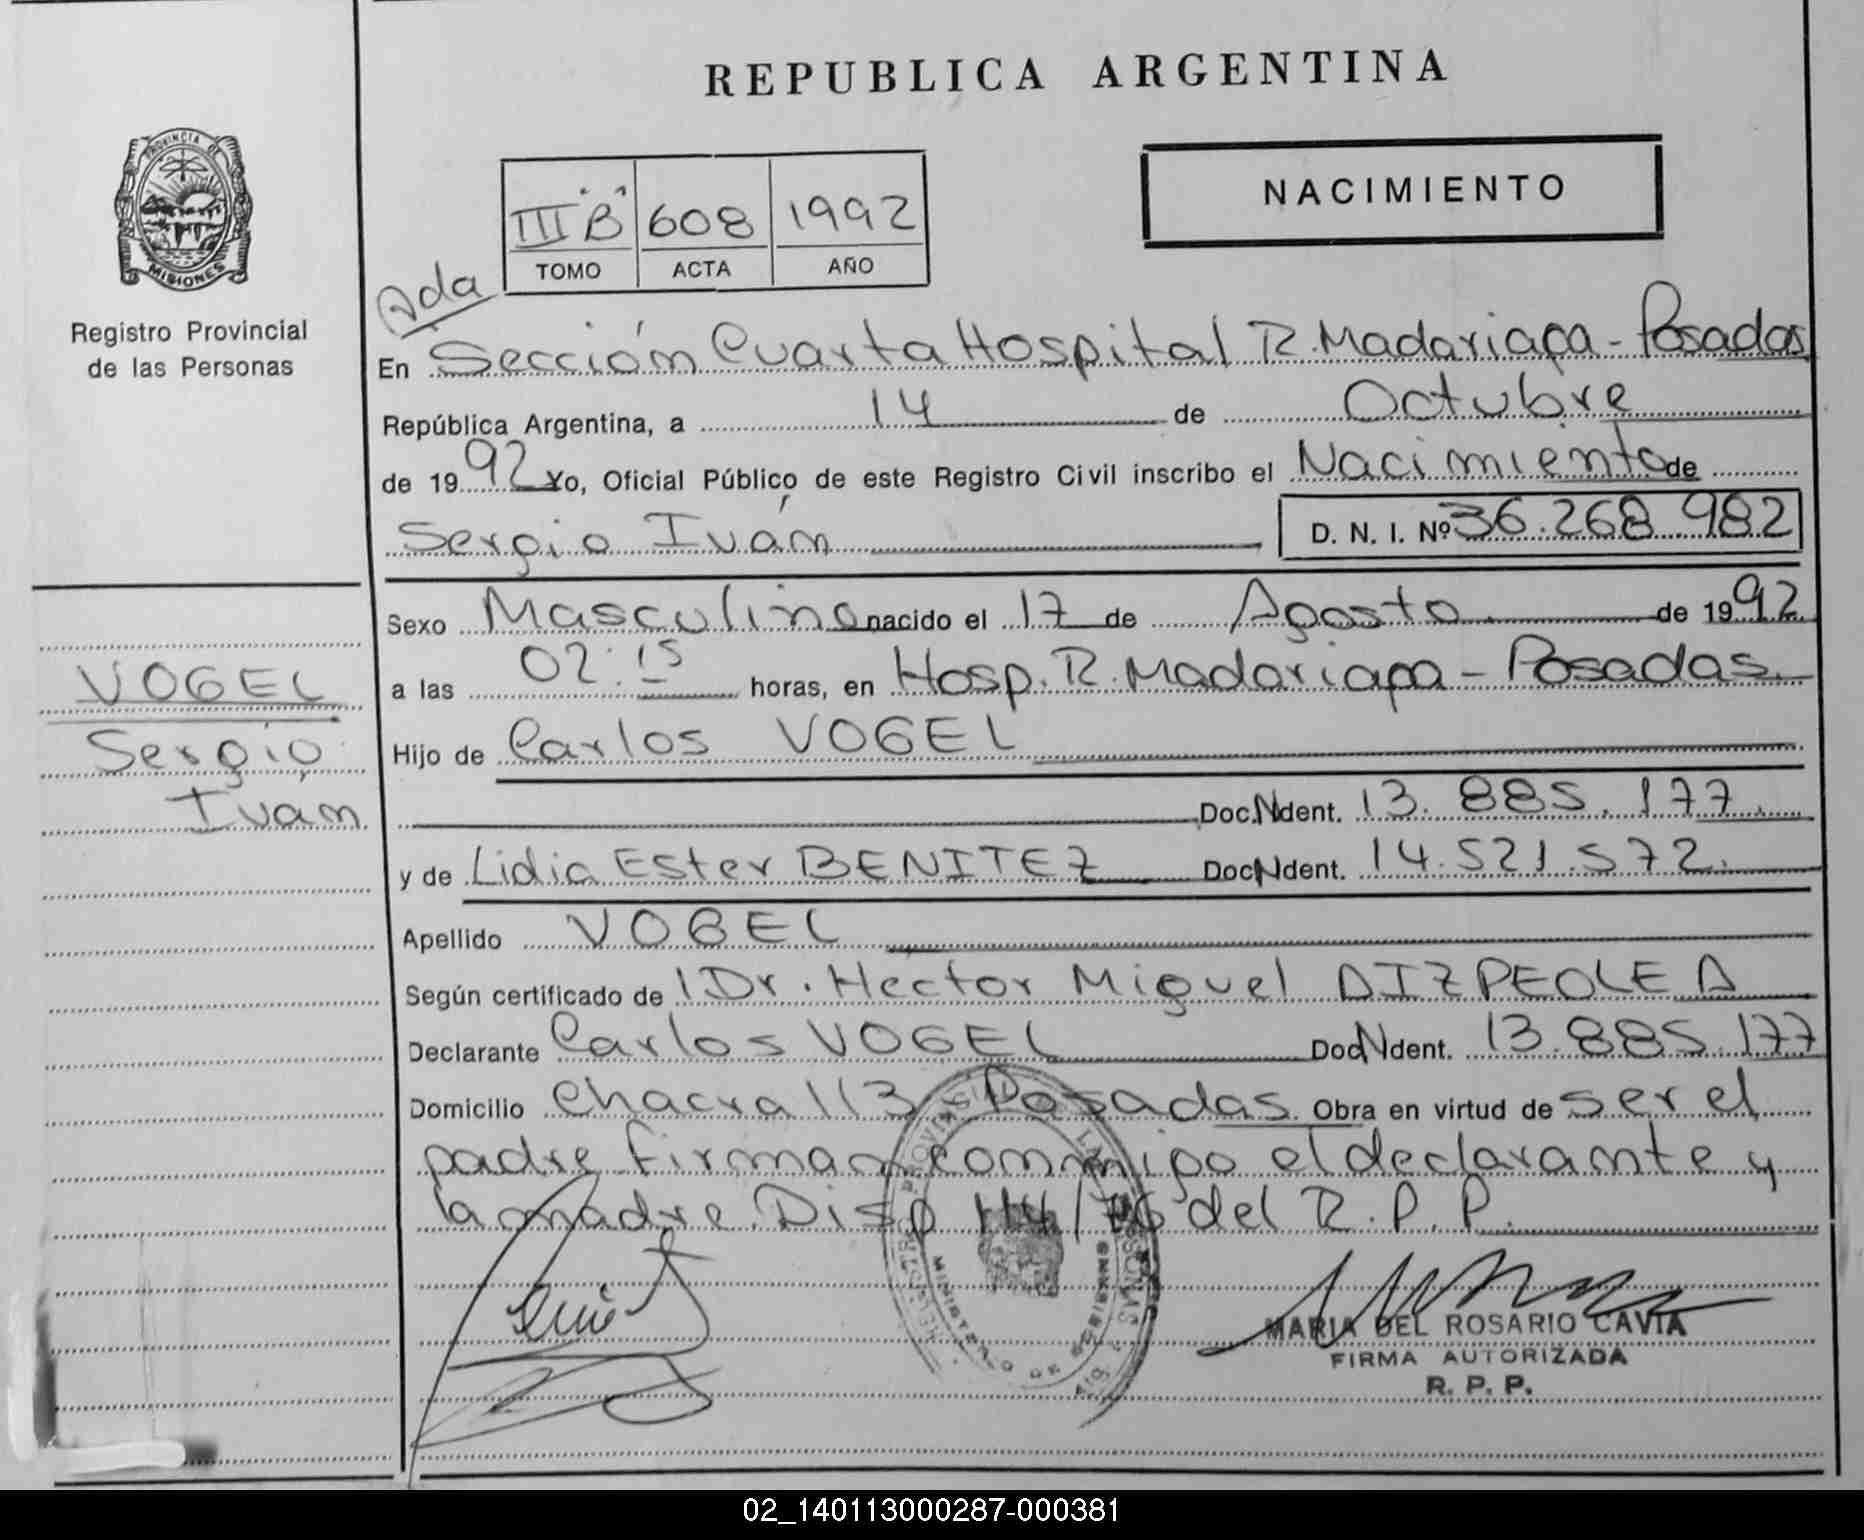 REPUBLICA ARGENTINA
PROVINCIA DE
MISIONES
Registro Provincial
de las Personas
NACIMIENTO
III "B" 608 1992
TOMO ACTA AÑO
En Sección Cuarta Hospital R. Madariaga - Posadas
República Argentina, a 14 de Octubre
de 1992 Yo, Oficial Público de este Registro Civil inscribo el Nacimiento de
Sergio Iván D. N. I. Nº 36.268.982
Sexo Masculino nacido el 17 de Agosto de 1992
a las 02:15 horas, en Hosp. R. Madariaga - Posadas.
Hijo de Carlos VOGEL
Doc. Ndent. 13.885.177.
y de Lidia Ester BENITEZ Doc Ndent. 14.521.572.
Apellido VOGEL
Según certificado de Dr. Hector Miguel AIZPEOLEA
Declarante Carlos VOGEL Doc Ndent. 13.885.177
Domicilio Chacra 113 Posadas. Obra en virtud de ser el
padre firman conmigo el declarante y
la madre. Disp 114/76 del R.P.P.
VOGEL
Sergio
Iván
MARIA DEL ROSARIO CAVIA
FIRMA AUTORIZADA
R. P. P.
MINISTERIO DE GOBIERNO
02_140113000287-000381